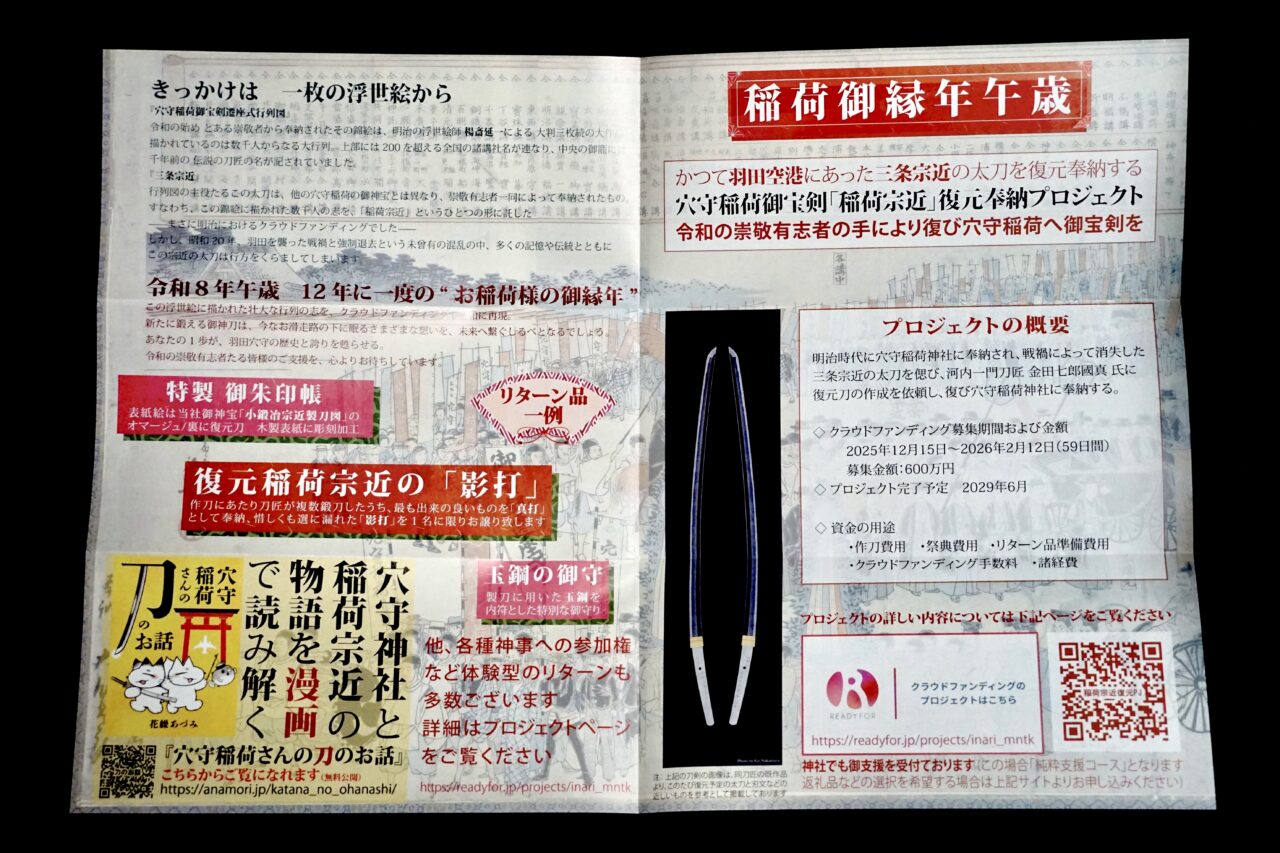 きっかけは　一枚の浮世絵から
『穴守稲荷御宝剣遷座式行列図』
令和の始め とある崇敬者から奉納されたその錦絵は、明治の浮世絵師 楊斎延一による 大判三枚続の大作
描かれているのは数千人からなる大行列。上部には200を超える全国の諸講社名が連なり、中央の御籠に
千年前の 伝説の刀匠の名が記されていました。
『三条宗近』
行列図の主役たるこの太刀は、他の穴守稲荷の御神宝とは異なり、崇敬有志者一同によって奉納されたもの。
すなわち、この錦絵に描かれた数千人の志を、「稲荷宗近」というひとつの形に託した
――まさに明治におけるクラウドファンディングでした――
しかし、昭和20年、羽田を襲った戦禍と強制退去という未曾有の混乱の中、多くの記憶や伝統とともに
この宗近の太刀は行方をくらましてしまいます
令和8年午歳　12年に一度の“お稲荷様の御縁年”
この浮世絵に描かれた壮大な行列の志を、クラウドファンディングで に再現。
新たに鍛える御神刀は、今なお滑走路の下に眠るさまざまな想いを、未来へ繋ぐしるべとなるでしょう。
あなたの1歩が、羽田穴守の歴史と誇りを甦らせる。
令和の崇敬有志者たる皆様のご支援を、心よりお待ちしています。
特製 御朱印帳
表紙絵は当社御神宝「小鍛冶宗近製刀図」の
オマージュ/裏に復元刀　木製表紙に彫刻加工
リターン品
一例
復元稲荷宗近の「影打」
作刀にあたり刀匠が複数鍛刀したうち、最も出来の良いものを「真打」
として奉納、惜しくも選に漏れた「影打」を1名に限りお譲り致します
穴守
稲荷
さんの
刀
のお話
花緑あづみ
穴守神社と
稲荷宗近の
物語を漫画
で読み解く
『穴守稲荷さんの刀のお話』
こちらからご覧になれます(無料公開)
https://anamori.jp/katana_no_ohanashi/
玉鋼の御守
製刀に用いた玉鋼を
内符とした特別な御守り
他、各種神事への参加権
など体験型のリターンも
多数ございます
詳細はプロジェクトページ
をご覧ください
https://readyfor.jp/projects/inari_mntk
稲荷御縁年午歳
かつて羽田空港にあった三条宗近の太刀を復元奉納する
穴守稲荷御宝剣「稲荷宗近」復元奉納プロジェクト
令和の崇敬有志者の手により復び穴守稲荷へ御宝剣を
各講中
プロジェクトの概要
明治時代に穴守稲荷神社に奉納され、戦禍によって消失した
三条宗近の太刀を偲び、河内一門刀匠 金田七郎國真 氏に
復元刀の作成を依頼し、復び穴守稲荷神社に奉納する。
◇ クラウドファンディング募集期間および金額
2025年12月15日～2026年2月12日（59日間）
募集金額：600万円
◇ プロジェクト完了予定　2029年6月
◇ 資金の用途
・作刀費用　・祭典費用　・リターン品準備費用
・クラウドファンディング手数料　・諸経費
プロジェクトの詳しい内容については下記ページをご覧ください
READYFOR
クラウドファンディングの
プロジェクトはこちら
https://readyfor.jp/projects/inari_mntk
稲荷宗近復元PJ
注：上記の刀剣の画像は、同刀匠の既作品
より、このたび復元予定の太刀と刃文などの
近しいものを参考として掲載しております
神社でも御支援を受付ております（この場合「純粋支援コース」となります
返礼品などの選択を希望する場合は上記サイトよりお申し込みください）